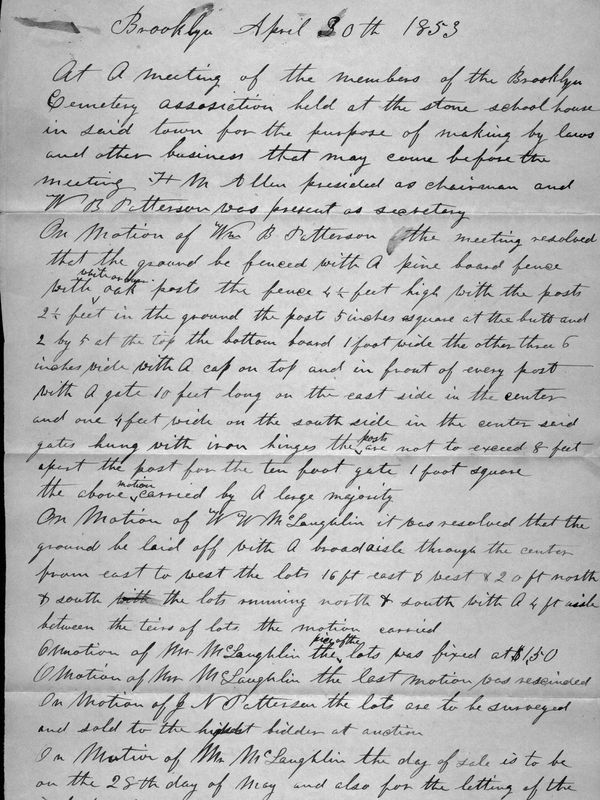 Brooklyn April 30th 1853
At A meeting of the members of the Brooklyn
Cemetery assosiction held at the stone school house
in said town for the purpose of making by laws
and other business that may come before the
meeting H M Allen presided as chairman and
W B Patterson was present as secretary
On Motion of Wm B Patterson the meeting resolved
that the ground be fenced with A pine board fence
white or
with oak posts the fence 4½ feet high with the posts
2½ feet in the ground the post 5 inches square at the butt and
2 by 5 at the top the bottom board 1 foot wide the other three 6
inches wide with A cap on top and in front of every post
with A gate 10 feet long on the east side in the center
and one 4 feet wide on the south side in the center said
gates hung with iron hinges the posts are not to exceed 8 feet
apart the post for the ten foot gate 1 foot square
the above motion carried by A large majority
On Motion of W W McLaughlin it was resolved that the
ground be laid off with A broad aisle through the center
from east to west the lots 16 ft east & west & 20 ft north
& south with the lots running north & south with A 4 ft aisle
between the teirs of lots the motion carried
Omotion of Mr McLaughlin the price of the lots was fixed at $1,50
O Motion of Mr McLaughlin the last motion was rescinded
On Motion of J N Patterson the lots are to be surveyed
and sold to the highest bidder at auction
On Motion of Mr McLaughlin the day of sale is to be
on the 28th day of May and also for the letting of the